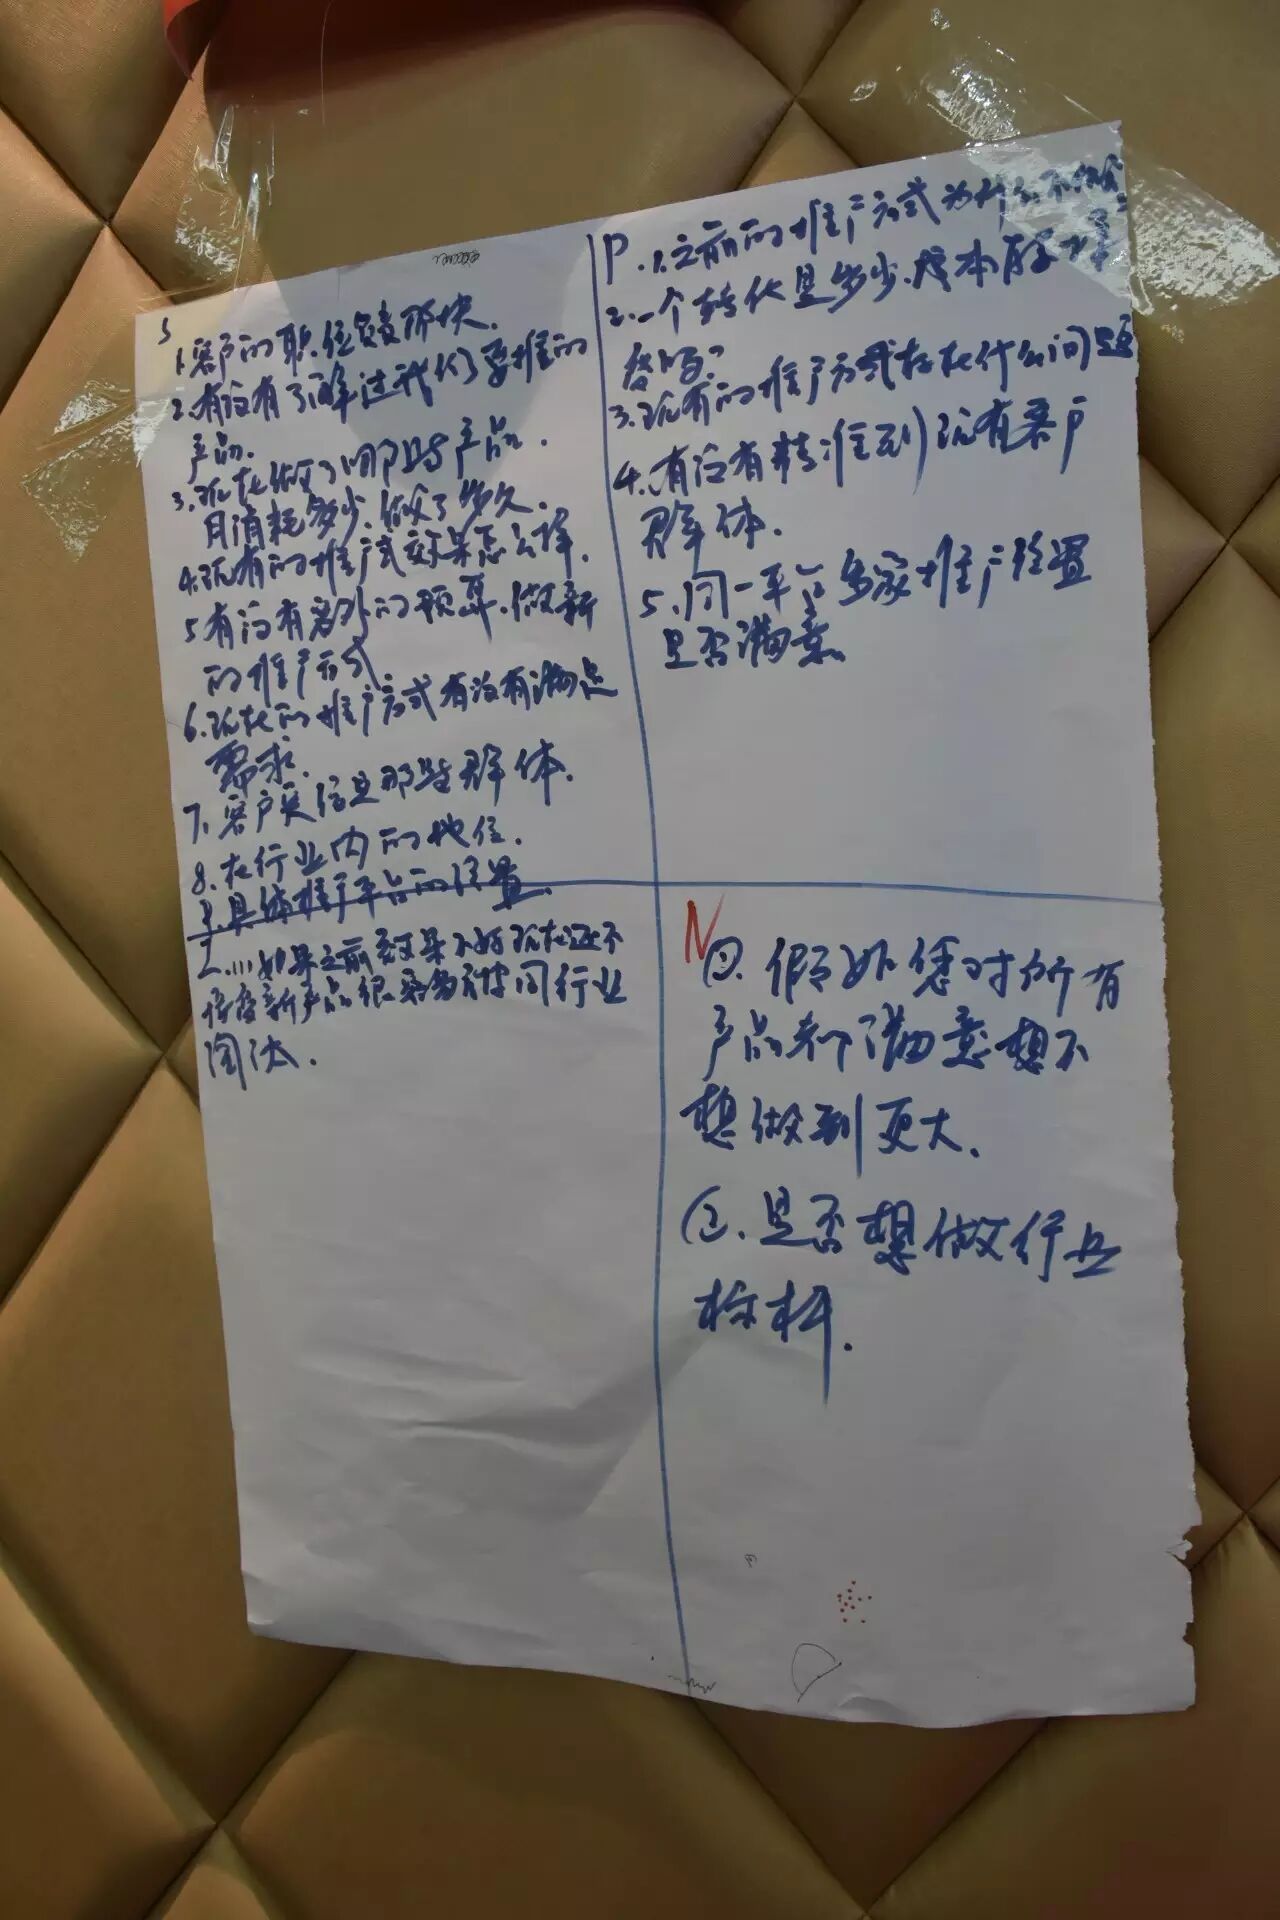 S
1.客户的职位负责那块.
2.有没有了解过我们要推的
产品.
3.现在做了那些产品.
月消耗多少.做了多久.
4.现有的推广式效果怎么样.
5有没有额外的预算.做新
的推广方式
6.现在的推广方式有没有满足
需求.
7.客户是那些群体.
8.在行业内的地位.
9.具体推广平台的位置.
I....如果之前效果不好现在还不
新产品很容易被同行业
淘汰.
P.1.之前的推广方式为什么不做
2.一个转化是多少.成本
3.现有的推广方式存在什么问题
4.有没有精准到现有客户
群体.
5.同一平台多家推广位置
是否满意.
N
①.假如您对所有
产品都满意想不
想做到更大.
②.是否想做行业
标杆.